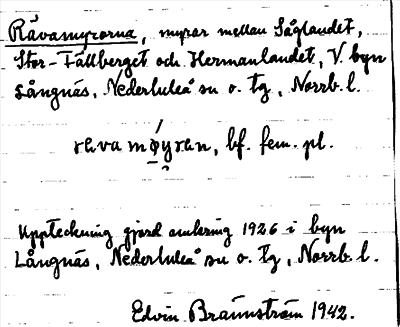 Rävamyrorna, myror mellan Såglandet,
Stor-Fällberget och Hermanlandet, V. byn
Långnäs, Nederluleå sn o. tg, Norrb. l.
bf. fem. pl.
Uppteckning gjord omkring 1926 i byn
Långnäs, Nederluleå sn o. tg, Norrb l.
Edvin Brännström 1942.